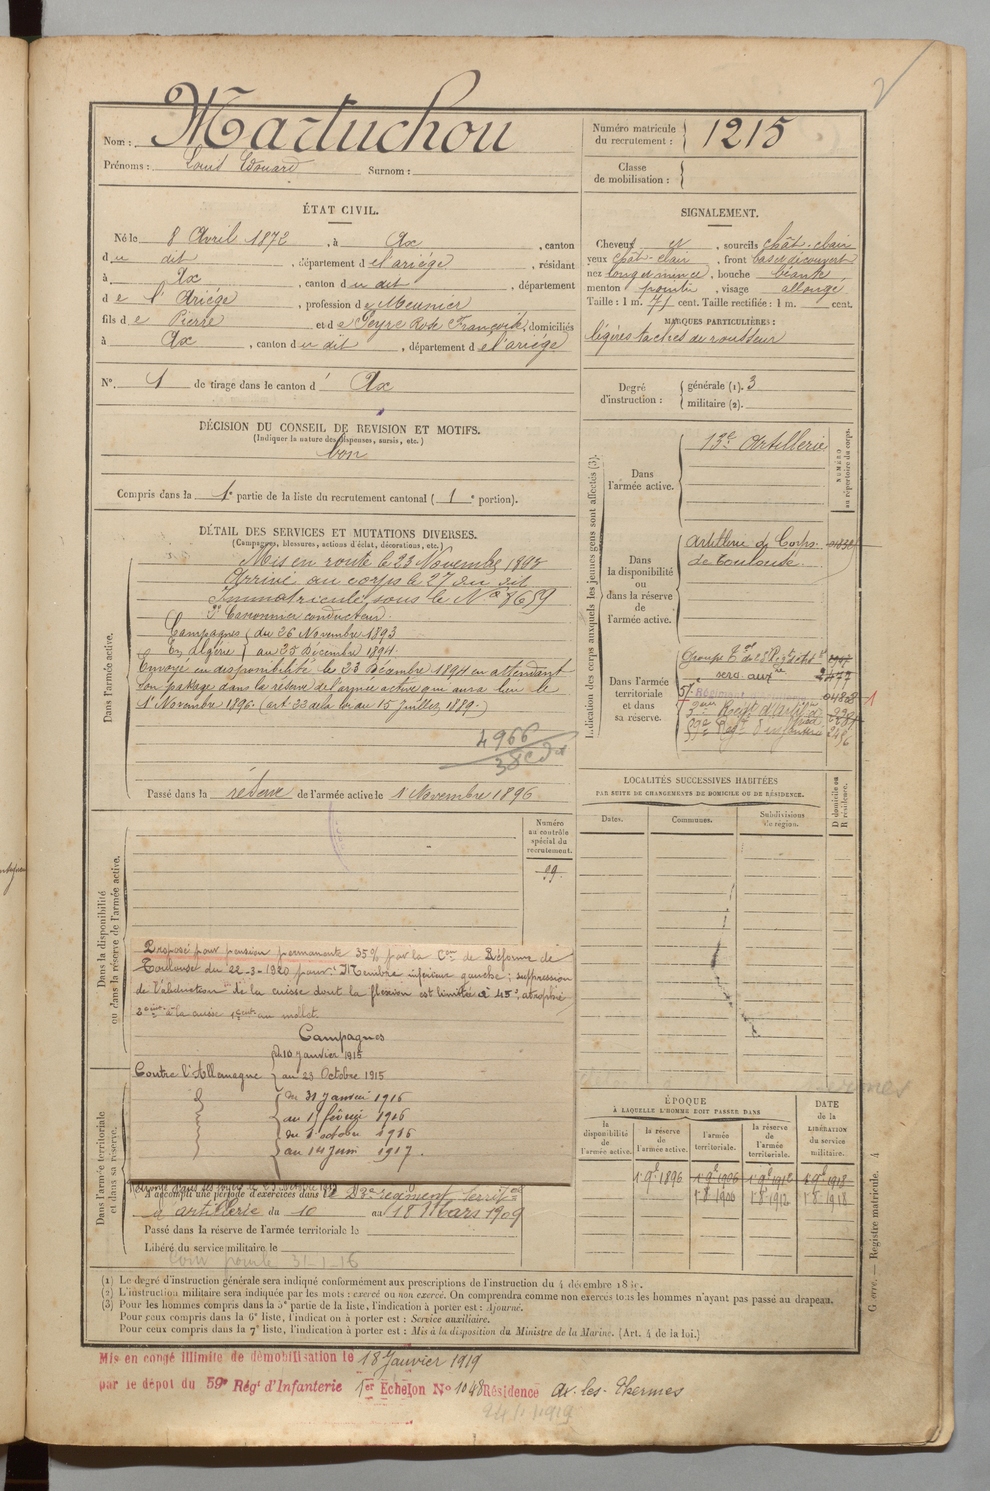 Nom : Martuchou
Prénoms : Louis Edouard Surnom :
Numéro matricule du recrutement : 1215
Classe de mobilisation :
ÉTAT CIVIL.
Né le 8 Avril 1872, à Ax, canton
du dit, département de l'ariége, résidant
à Ax, canton du dit, département
de l'Ariége, profession de Meunier
fils de Pierre et de Peyre Rose Françoise, domiciliés
à Ax, canton du dit, département de l'ariége
N° 1 de tirage dans le canton d' Ax
SIGNALEMENT.
Cheveux et, sourcils chât-clair
yeux chât-clair, front bas et découvert
nez long et mince, bouche béante
menton pointu, visage allongé
Taille : 1 m. 71 cent. Taille rectifiée : 1 m. cent.
MARQUES PARTICULIÈRES :
légères taches de rousseur
Degré d'instruction : générale (1). 3
militaire (2).
DÉCISION DU CONSEIL DE REVISION ET MOTIFS.
(Indiquer la nature des dispenses, sursis, etc.)
bon
Compris dans la 1e partie de la liste du recrutement cantonal (1e portion).
DÉTAIL DES SERVICES ET MUTATIONS DIVERSES.
(Campagnes, blessures, actions d'éclat, décorations, etc.)
Dans l'armée active.
Mis en route le 23 Novembre 1893
Arrivé au corps le 27 du dit
Immatriculé sous le N°
2e Canonnier conducteur.
Campagnes du 26 Novembre 1893
En Algérie au 25 Décembre 1894.
Envoyé en disponibilité le 23 Décembre 1894 en attendant
son passage dans la réserve de l'armée active qui aura lieu le
1r Novembre 1896. (art: 33 de la loi du 15 Juillet 1889.)
4966
Passé dans la réserve de l'armée active le 1r Novembre 1896.
Indication des corps auxquels les jeunes gens sont affectés (3).
NUMÉRO au répertoire du corps.
Dans l'armée active.
13e Artillerie
Dans la disponibilité ou dans la réserve de l'armée active.
Artillerie de Corps
de Toulouse.
Dans l'armée territoriale et dans sa réserve.
serv. auxre
04868
Regt d'Artillie
LOCALITÉS SUCCESSIVES HABITÉES
PAR SUITE DE CHANGEMENTS DE DOMICILE OU DE RÉSIDENCE.
Dates.
Communes.
Subdivisions de région.
D domicile ou R résidence.
Dans la disponibilité ou dans la réserve de l'armée active.
Numéro au contrôle spécial du recrutement.
99.
Proposé pour pension permanente 35% par la Con de Réforme de
Toulouse du 22-3-1920 pour: Membre inférieur gauche; suppression
de l'abduction de la cuisse dont la flexion est limitée à 45°, atrophie
à la cuisse au mollet.
Campagnes
du 10 Janvier 1915
Contre l'Allemagne au 23 Octobre 1915
du 31 Janvier 1916
au 19 février 1916
du 1r octobre 1916
au 14 Juin 1917.
Dans l'armée territoriale et dans sa réserve.
A accompli une période d'exercices dans le régiment territal
d'artillerie du 10 au 18 Mars 1909
Passé dans la réserve de l'armée territoriale le
Libéré du service militaire le
31-1-16
ÉPOQUE
À LAQUELLE L'HOMME DOIT PASSER DANS
DATE de la LIBÉRATION du service militaire.
la disponibilité de l'armée active.
la réserve de l'armée active.
l'armée territoriale.
la réserve de l'armée territoriale.
1r 9b 1896 1r 9b 1906 1r 9b 1912 1r 9b 1918
1.8.1906 1.8.1912 1.8.1918
(1) Le degré d'instruction générale sera indiqué conformément aux prescriptions de l'instruction du 4 décembre
(2) L'instruction militaire sera indiquée par les mots : exercé ou non exercé. On comprendra comme non exercés tous les hommes n'ayant pas passé au drapeau.
(3) Pour les hommes compris dans la 5e partie de la liste, l'indication à porter est : Ajourné.
Pour ceux compris dans la 6e liste, l'indication à porter est : Service auxiliaire.
Pour ceux compris dans la 7e liste, l'indication à porter est : Mis à la disposition du Ministre de la Marine. (Art. 4 de la loi.)
Registre matricule. 4
Mis en congé illimité de démobilisation le 18 Janvier 1919
par le dépôt du 59e Régt d'Infanterie 1er Echelon No 1048 Résidence Ax-les-Thermes